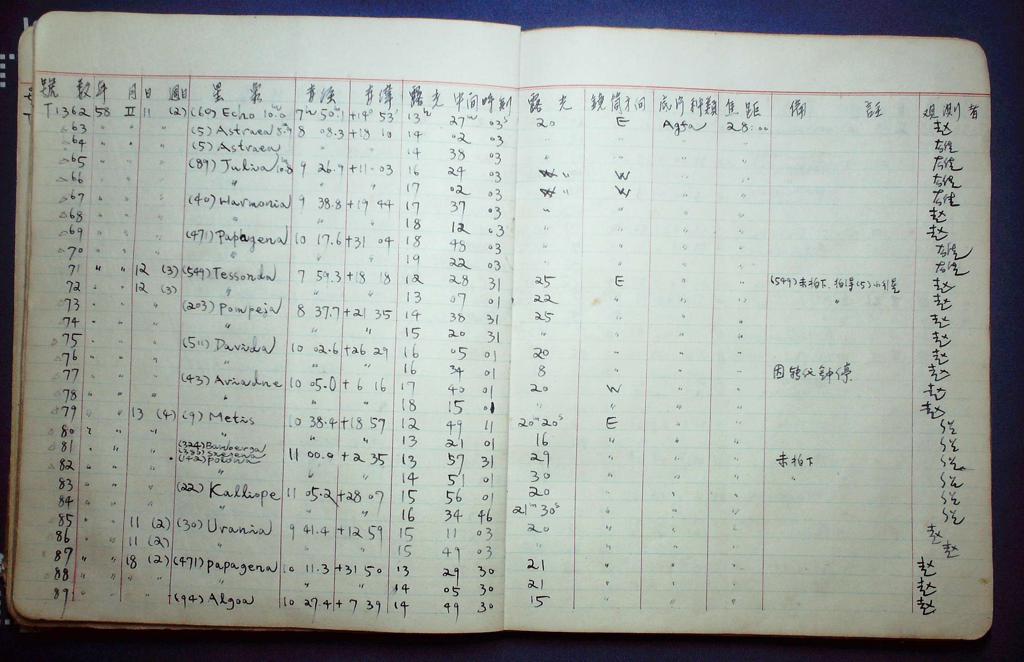 號 數 年 月 日 週日 星 象 赤經 赤緯 露光中間時刻 露光 鏡筒方向 底片种類 焦距 備註 观測者
T1362 58 II 11 (2) (60) Echo 10.0 7 50.1 +19 53 13 27 03 20 E Agfa 28:00 赵
63 " " " (5) Astraea 8 08.3 +18 10 14 02 03 " " " "
64 " " " (5) Astraea 14 38 03 " " " "
65 " " " (89) Julia 9 26.9 +11 03 16 24 03 " W " "
66 " " " " 17 02 03 " W " "
67 " " " (40) Harmonia 9 38.8 +19 44 17 37 03 " " " " 赵
68 " " " " 18 12 03 " " " " 赵
69 " " " (471) Papagena 10 17.6 +31 04 18 48 03 " " " "
70 " " " " 19 22 03 " " " "
71 " " 12 (3) (549) Tessonda 7 59.3 +18 18 12 28 31 25 E " " (549)未拍下, 拍得(5)小行星 赵
72 12 (3) " " " 13 07 01 22 " " " " 赵
73 " " " (203) Pompeja 8 37.7 +21 35 14 38 31 25 " " " 赵
74 " " " " " " 15 20 31 " " " " 赵
75 " " " (511) Davida 10 02.6 +26 29 16 05 01 20 " " " 赵
76 " " " " " " 16 34 01 8 " " " 因转仪钟停 赵
77 " " " (43) Ariadne 10 05.0 +6 16 17 40 01 20 W " " 赵
78 " " " " " " 18 15 01 " " " " 赵
79 " " 13 (4) (9) Metis 10 38.4 +18 57 12 49 11 20m 20s E " "
80 " " " " " " 13 21 01 16 " " "
81 " " " (324) Bamberga 11 00.0 +2 35 13 57 31 29 " " " 未拍下
82 " " " " " " 14 51 01 30 " " " "
83 " " " (22) Kalliope 11 05.2 +28 07 15 56 01 20 " " "
84 " " " " " " 16 34 46 21m 30s " " "
85 " " 11 (2) (30) Urania 9 41.4 +12 59 15 11 03 20 " " " 赵
86 11 (2) " " " 15 49 03 " " " " 赵
87 " " 18 (2) (471) Papagena 10 11.3 +31 50 13 29 30 21 " " " 赵
88 " " " " " " 14 05 30 21 " " " 赵
89 " " " (94) Algoa 10 27.4 +7 39 14 49 30 15 " " " 赵